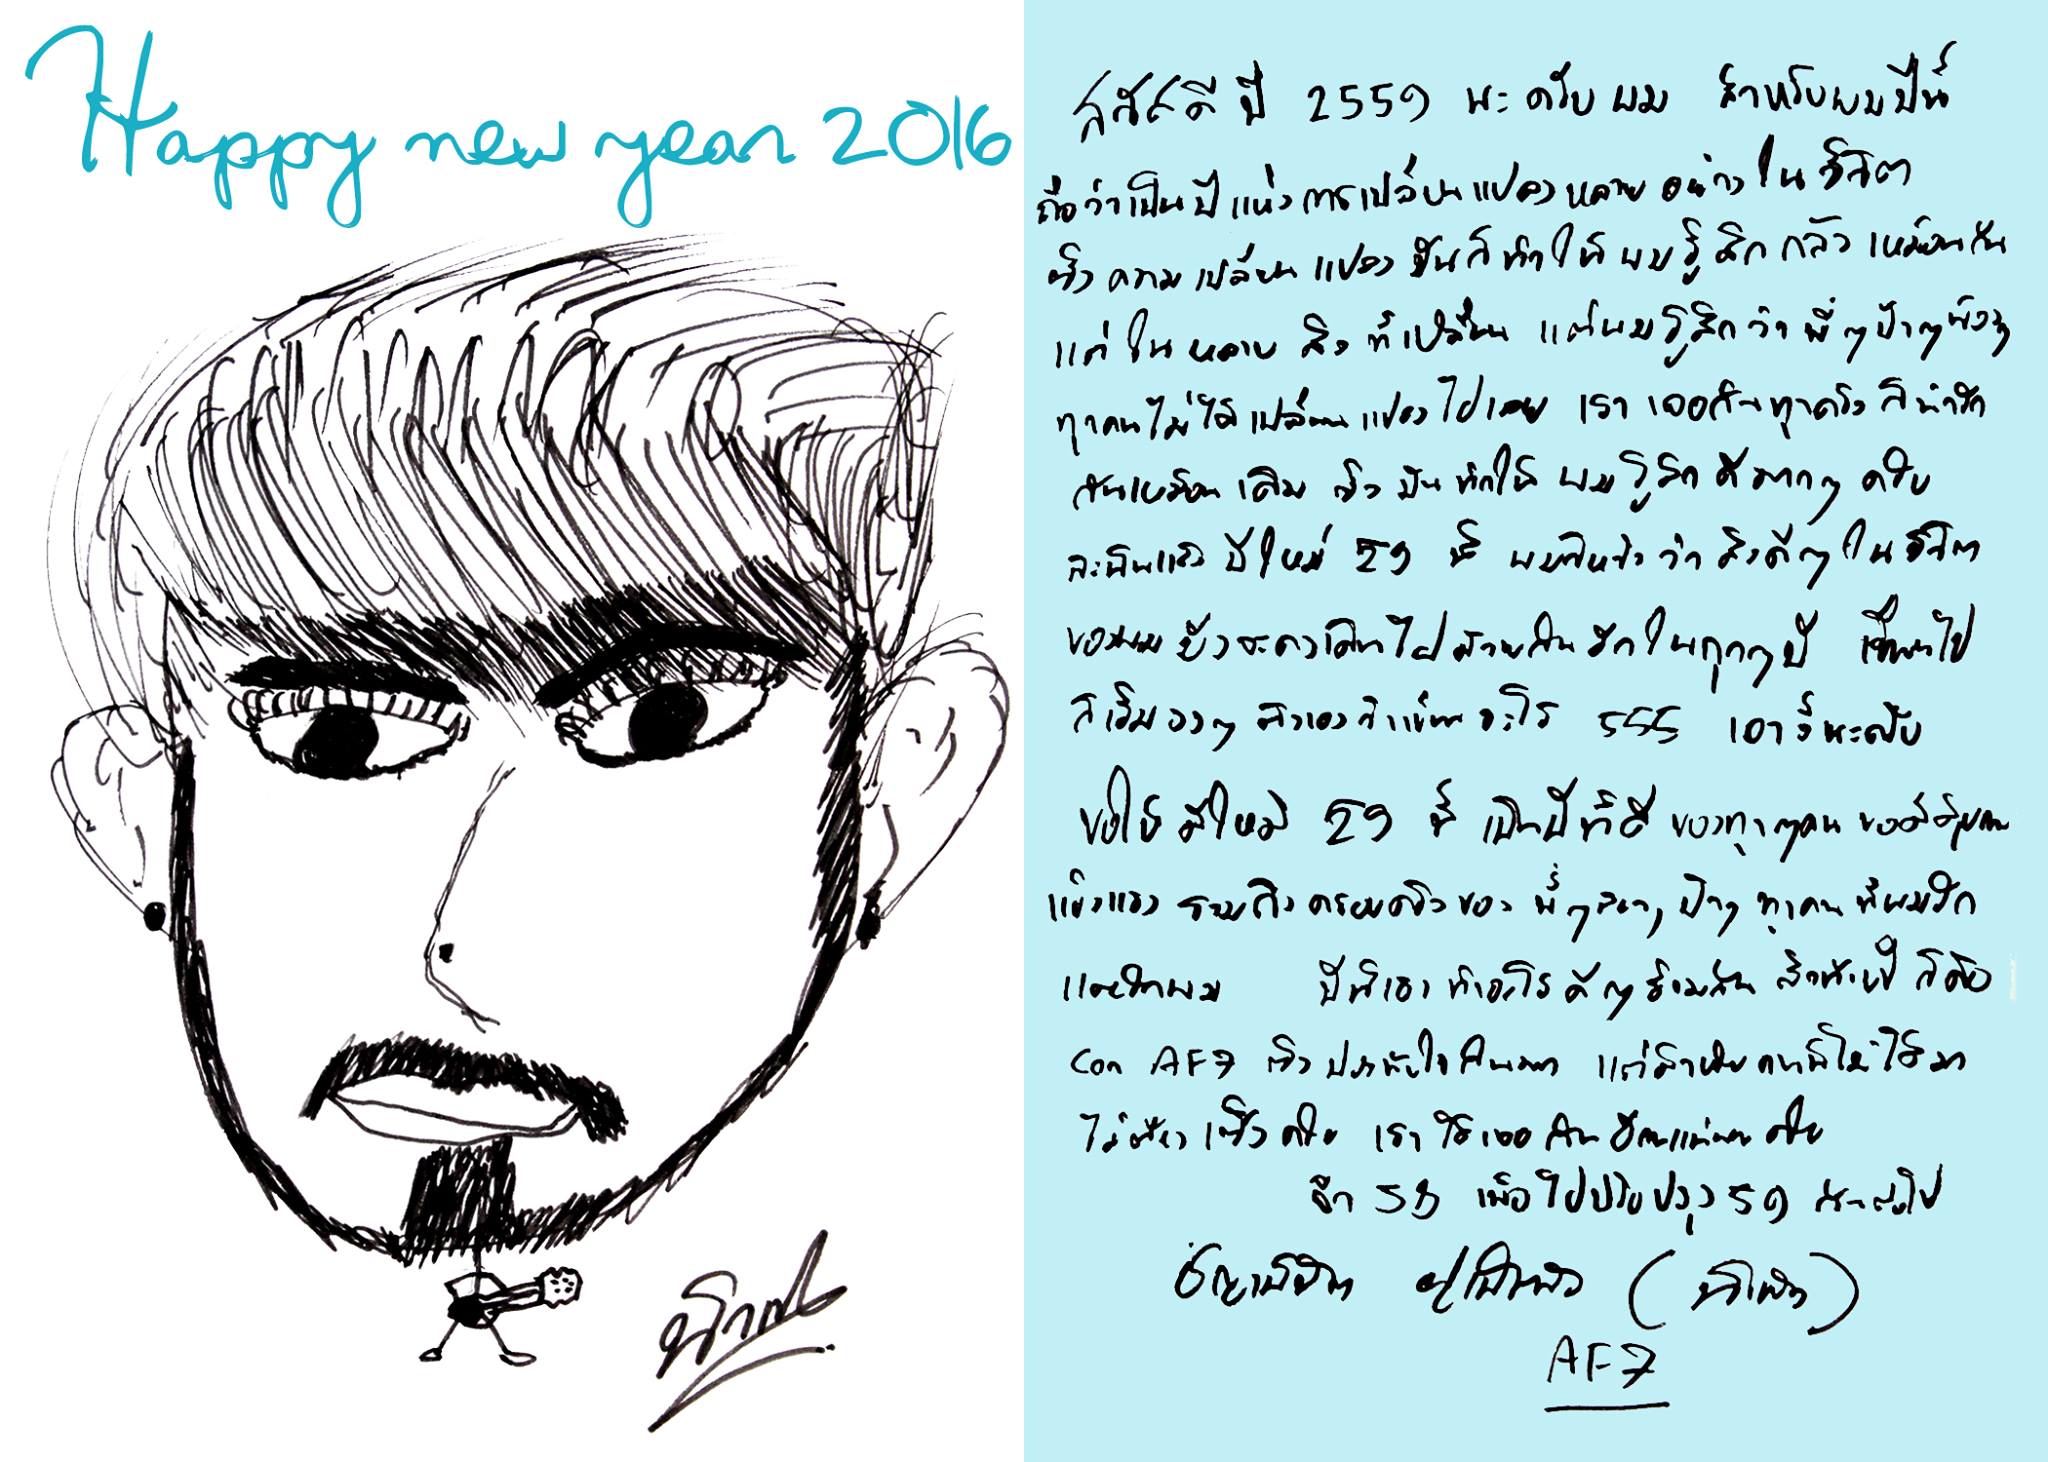 Happy new year 2016
สวัสดี ปี 2559 นะครับผม สำหรับผมปีนี้
ถือว่าเป็นปีแห่งการเปลี่ยนแปลงหลายอย่างในชีวิต
ซึ่งความเปลี่ยนแปลงมันก็ทำให้ผมรู้สึกกลัวเหมือนกัน
แต่ในหลายสิ่งที่เปลี่ยน แต่ผมรู้สึกว่า พี่ๆป้าๆน้องๆ
ทุกคนไม่ได้เปลี่ยนแปลงไปเลย เราเจอกันทุกครั้งก็น่ารัก
กันเหมือนเดิม ซึ่งมันทำให้ผมรู้สึกดีมากๆครับ
ปีใหม่ 59 นี้ ผมก็หวังว่าสิ่งดีๆในชีวิต
ของผมยังจะคงเดินไปด้วยกันอีกในทุกๆปี เขียนไป
ก็เริ่มงงๆ ตัวเองว่าเขียนอะไร 555 เอางี้นะครับ
ขอให้ ปีใหม่ 59 นี้ เป็นปีที่ดี ของทุกๆคน ขอให้สุขภาพ
แข็งแรง รวมถึงครอบครัวของ พี่ๆ ป้าๆ ทุกคนที่ผมรัก
และรักผม ปีที่เราทำอะไรดีๆร่วมกัน สิ้นปีก็คือ
con AF7 ซึ่งประทับใจกันมาก แต่สำหรับคนที่ไม่ได้มา
ไม่ต้อง ครับ เราได้เจอกันอีกแน่นอนครับ
ลา 58 เพื่อไปปรับปรุง 59 กันต่อไป
AF7